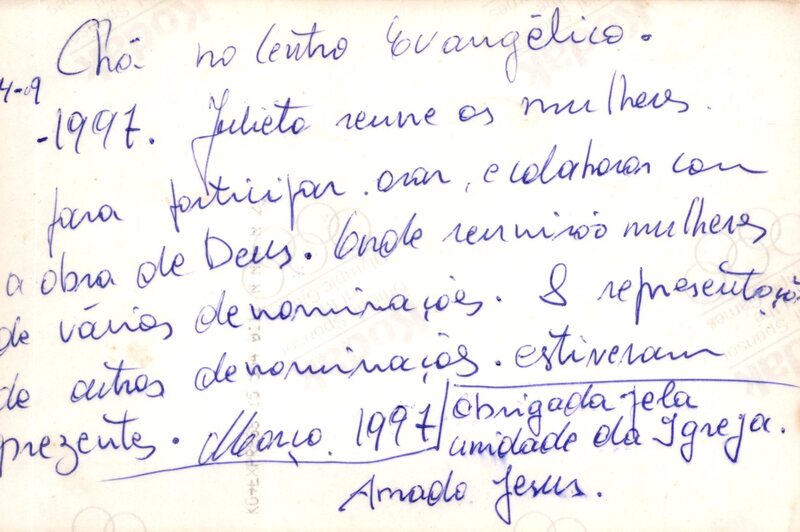 Chá no Centro Evangélico.
4-09
-1997. Julieta reune as mulheres.
para participar. orar, e colaborar com
a obra de Deus. Onde reunirão mulheres
de vários denominações. 8 representações
de outras denominações. estiveram
prezentes. Março. 1997 obrigada pela
unidade da Igreja.
Amado Jesus.